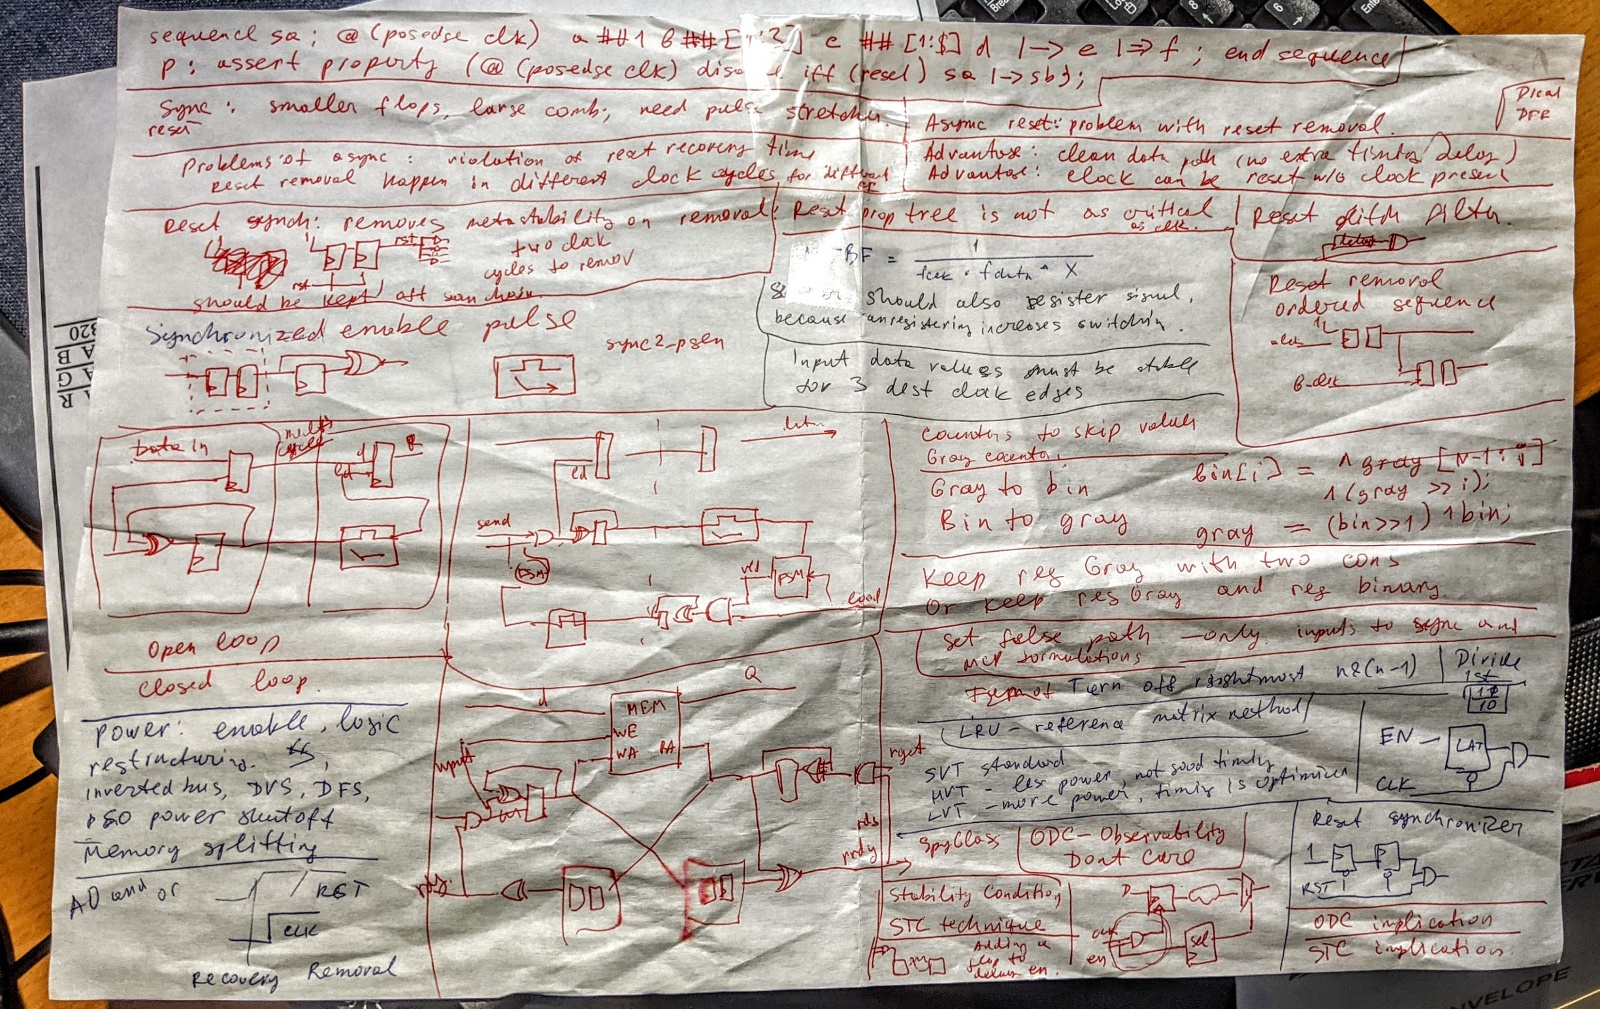 sequence sa; @(posedge clk) a ##1 b ## [1:2] c ## [1:$] d |-> e |=> f ; end sequence
p : assert property (@(posedge clk) iff (reset) sa |-> sb);
Sync reset: smaller flops, large comb; need pulse stretcher.
Async reset: problem with reset removal.
DFR
Problems of async: violation of reset recovery time
reset removal happen in different clock cycles for different
Advantage: clean data path (no extra timing delay)
Advantage: clock can be reset w/o clock present
Reset synch: removes metastability on removal
two clock
cycles to remov
rst
rst
should be kept off scan chain
Reset prop tree is not as critical
as clk.
Reset glitch filter.
delay
BF = 1 / fclk * fdata * X
should also register signal,
because unregistering increases switchin.
Input data values must be stable
for 3 dest clock edges
Reset removal
ordered sequence
1
Synchronized enable pulse
sync2-pgen
Data in
cycle
d
ld
Open loop
Closed loop.
ld
send
FSM
FSM
load
Counters to skip values
Gray counter:
Gray to bin
bin[i] = ^ gray [N-1:i]
^(gray >> i);
Bin to gray
gray = (bin>>1) ^ bin;
Keep reg Gray with two cons
Or keep reg Gray and reg binary.
Set false path - only inputs to sync and
MCP formulations
Turn off rightmost n&(n-1)
Divide
1st
10
LRU - reference matrix method
SVT standard
HVT - les power, not good timing
LVT - more power, timing is optimized
EN
LAT
CLK
Power: enable, logic
restructuring.
inverted bus, DVS, DFS,
PSO power shutoff
Memory splitting
AO and or
RST
CLK
Recovery Removal
d
Q
MEM
WE
WA
RA
rget
rrdy
SpyGlass
ODC - Observability
Dont Care
Reset synchronizer
1
RST
Stability Condition
STC technique
Adding a
flop to
delay en.
D
en
sel
ODC implication
STC implication
ENVELOPE